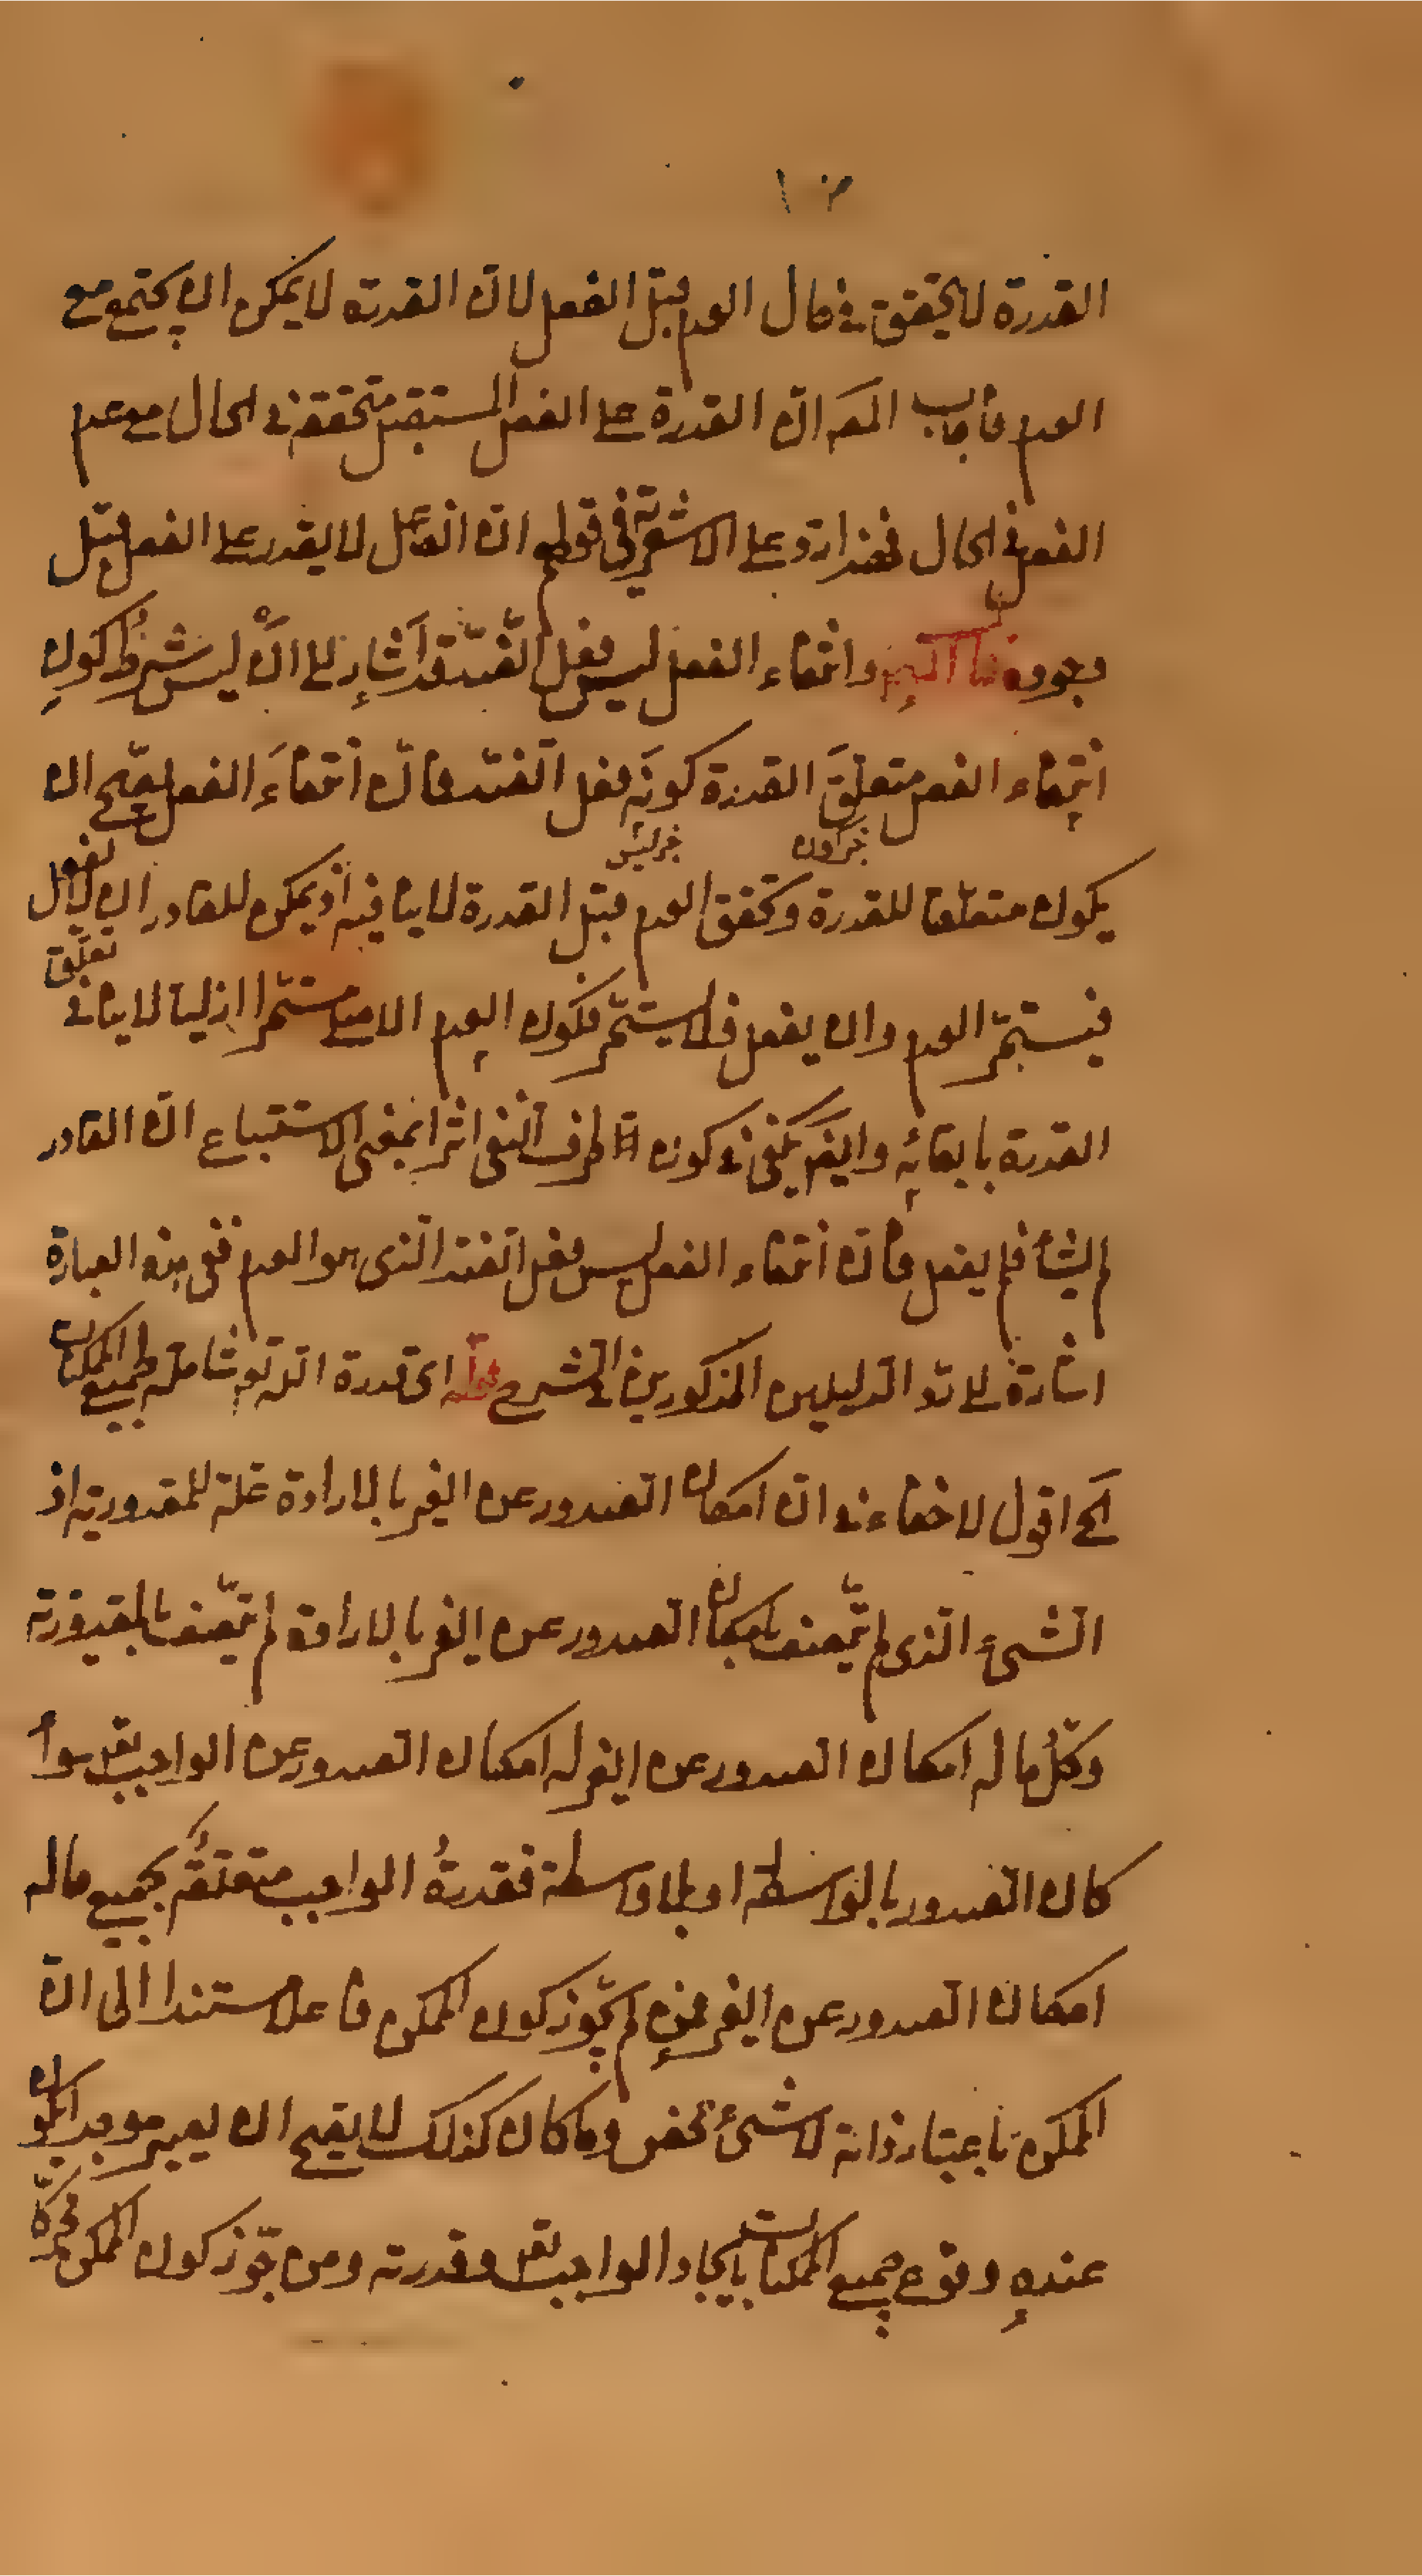 القدرة لا يتحقق في حال العدم قبل الفعل لان القدرة لا يمكن ان يجتمع مع
العدم فاجاب المصـ ان القدرة على الفعل المستقبل متحققة في الحال مع عدم
الفعل في الحال فهذا رد على الاشعرية في قولهم ان الفاعل لا يقدر على الفعل قبل
وجوده وانتفاء الفعل ليس فعل الضد قد اشار الى انّه ليس شرط كون
انتفاء الفعل متعلق القدرة كونه فعل الضد فان انتفاء الفعل يصح ان
خبر ان خبر ليس
يكون متعلقا للقدرة وتحقق العدم قبل القدرة لا ينافيه اذ يمكن للقادر ان لا يفعل
فيستمر العدم وان يفعل فلا يستمر فكون العدم الاصلي مستمرا ازليا لا ينافي تعلق
القدرة بابقائه وايضا يكفي في كون طرف النفي اثرا بمعنى الاستتباع ان القادر
لم يشأ فلم يفعل فان انتفاء الفعل ليس فعل الضد الذى هو العدم ففى هذه العبارة
اشارة الى رد الدليلين المذكورين في الشرح قوله اى قدرة الله تعـ شاملة لجميع الممكنات
الخ اقول لا خفاء في ان امكان الصدور عن الغير بالارادة علة للمقدورية اذ
الشىء الذى لم يتصف بامكان الصدور عن الغير بالارادة لم يتصف بالمقدورية
وكل ما له امكان الصدور عن الغير له امكان الصدور عن الواجب تعـ سواء
كان الصدور بالواسطة او بلا واسطة فقدرة الواجب متعلقة بجميع ما له
امكان الصدور عن الغير فمن لم يجوّز كون الممكن فاعلا مستندا الى ان
الممكن باعتبار ذاته لا شىء محض وما كان كذلك لا يصح ان يصير موجدا يكون
عنده وقوع جميع الممكنات بايجاد الواجب تعـ وقدرته ومن جوّز كون الممكن محركا